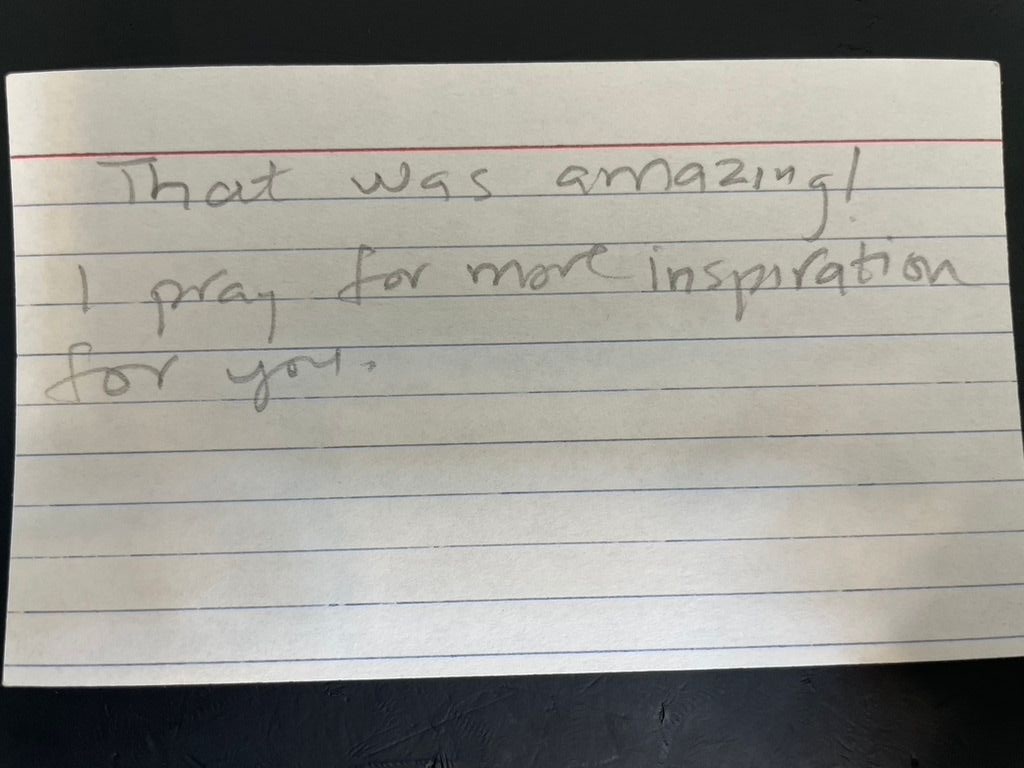 That was amazing!
I pray for more inspiration
for you.